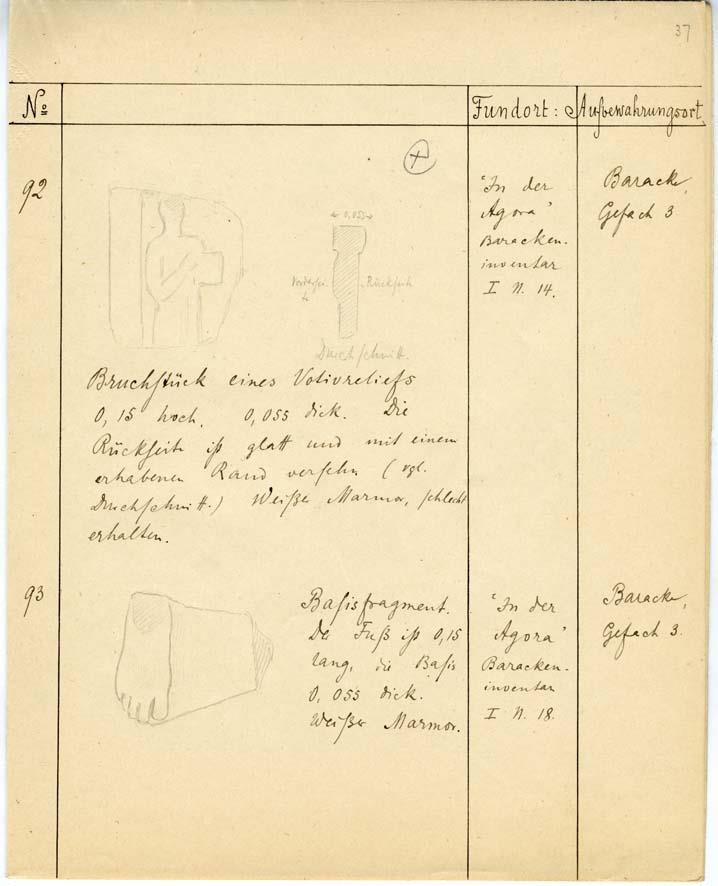 37
No Fundort: Aufbewahrungsort
92
+
← 0,055 →
Vordersei-
te
Rückseite
Durchschnitt.
Bruchstück eines Votivreliefs
0,15 hoch, 0,055 dick. Die
Rückseite ist glatt und mit einem
erhabenen Rand versehn (vgl.
Durchschnitt.) Weißer Marmor, schlecht
erhalten.
"In der
Agora"
Baracken-
inventar
I N. 14.
Baracke,
Gefach 3
93
Basisfragment.
Der Fuß ist 0,15
lang, die Basis
0,055 dick.
Weißer Marmor.
"In der
Agora"
Baracken-
inventar
I N. 18.
Baracke,
Gefach 3.